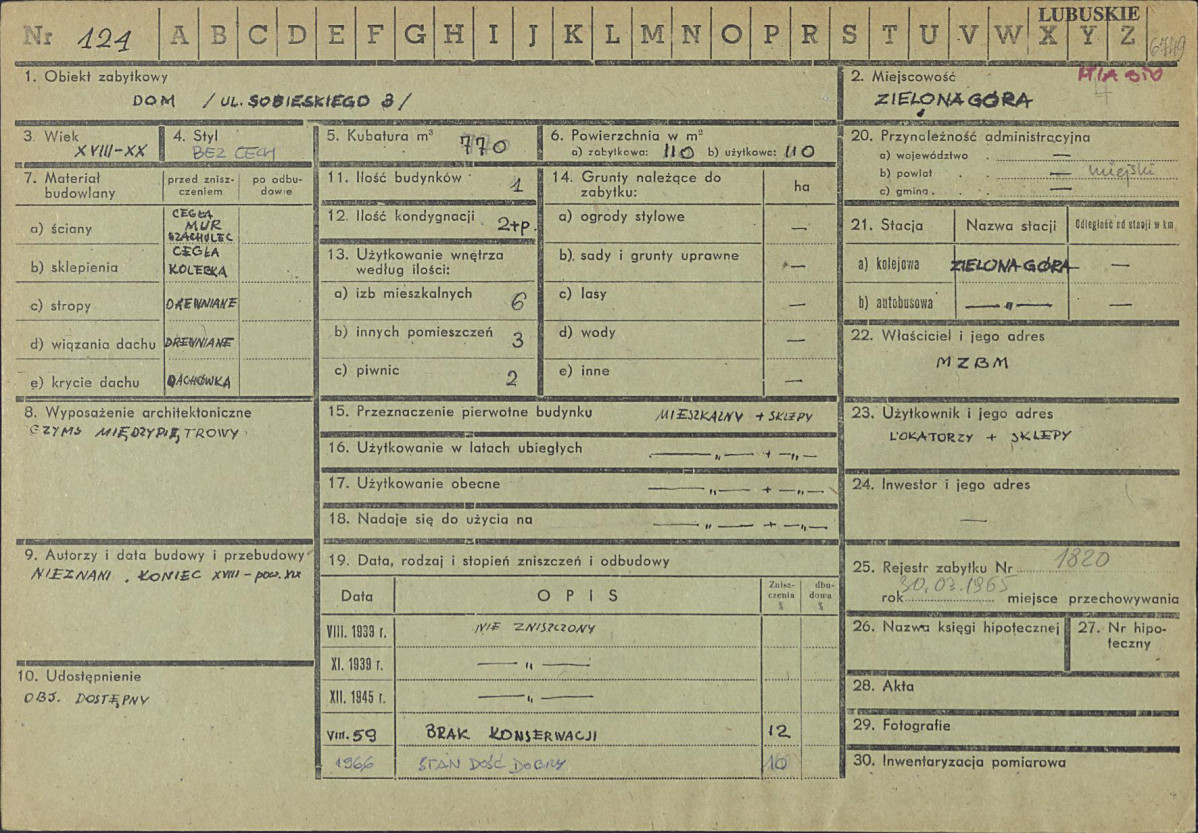 LUBUSKIE
Nr 121 A B C D E F G H I J K L M N O P R S T U V W X Y Z
1. Obiekt zabytkowy
DOM / UL. SOBIESKIEGO 3 /
2. Miejscowość
ZIELONA GÓRA
3. Wiek
XVIII-XX
4. Styl
BEZ CECH
5. Kubatura m³ 770
6. Powierzchnia w m²
a) zabytkowa: 110 b) użytkowa: 110
7. Materiał budowlany
przed zniszczeniem
po odbudowie
a) ściany
CEGŁA
MUR
SZACHULEC
b) sklepienia
CEGŁA
KOLEBKA
c) stropy DREWNIANE
d) wiązania dachu DREWNIANE
e) krycie dachu DACHÓWKA
8. Wyposażenie architektoniczne
GZYMS MIĘDZYPIĘTROWY
9. Autorzy i data budowy i przebudowy
NIEZNANI, KONIEC XVIII - pocz. XIX
10. Udostępnienie
OBJ. DOSTĘPNY
11. Ilość budynków 1
12. Ilość kondygnacji 2+p.
13. Użytkowanie wnętrza
według ilości:
a) izb mieszkalnych 6
b) innych pomieszczeń 3
c) piwnic 2
14. Grunty należące do
zabytku: ha
a) ogrody stylowe —
b) sady i grunty uprawne —
c) lasy —
d) wody —
e) inne —
15. Przeznaczenie pierwotne budynku MIESZKALNY + SKLEPY
16. Użytkowanie w latach ubiegłych — „ — + — „ —
17. Użytkowanie obecne — „ — + — „ —
18. Nadaje się do użycia na — „ — + — „ —
19. Data, rodzaj i stopień zniszczeń i odbudowy
Data OPIS Zniszczenia % dbudowa %
VIII. 1939 r. NIE ZNISZCZONY
XI. 1939 r. — „ —
XII. 1945 r. — „ —
VIII. 59 BRAK KONSERWACJI 12
1966 STAN DOŚĆ DOBRY 10
20. Przynależność administracyjna
a) województwo . —
b) powiat . — miejski
c) gmina . —
21. Stacja Nazwa stacji Odległość od stacji w km
a) kolejowa ZIELONA GÓRA —
b) autobusowa — „ — —
22. Właściciel i jego adres
MZBM
23. Użytkownik i jego adres
LOKATORZY + SKLEPY
24. Inwestor i jego adres
—
25. Rejestr zabytku Nr 1820
rok 30.03.1965 miejsce przechowywania
26. Nazwa księgi hipotecznej
27. Nr hipoteczny
28. Akta
29. Fotografie
30. Inwentaryzacja pomiarowa